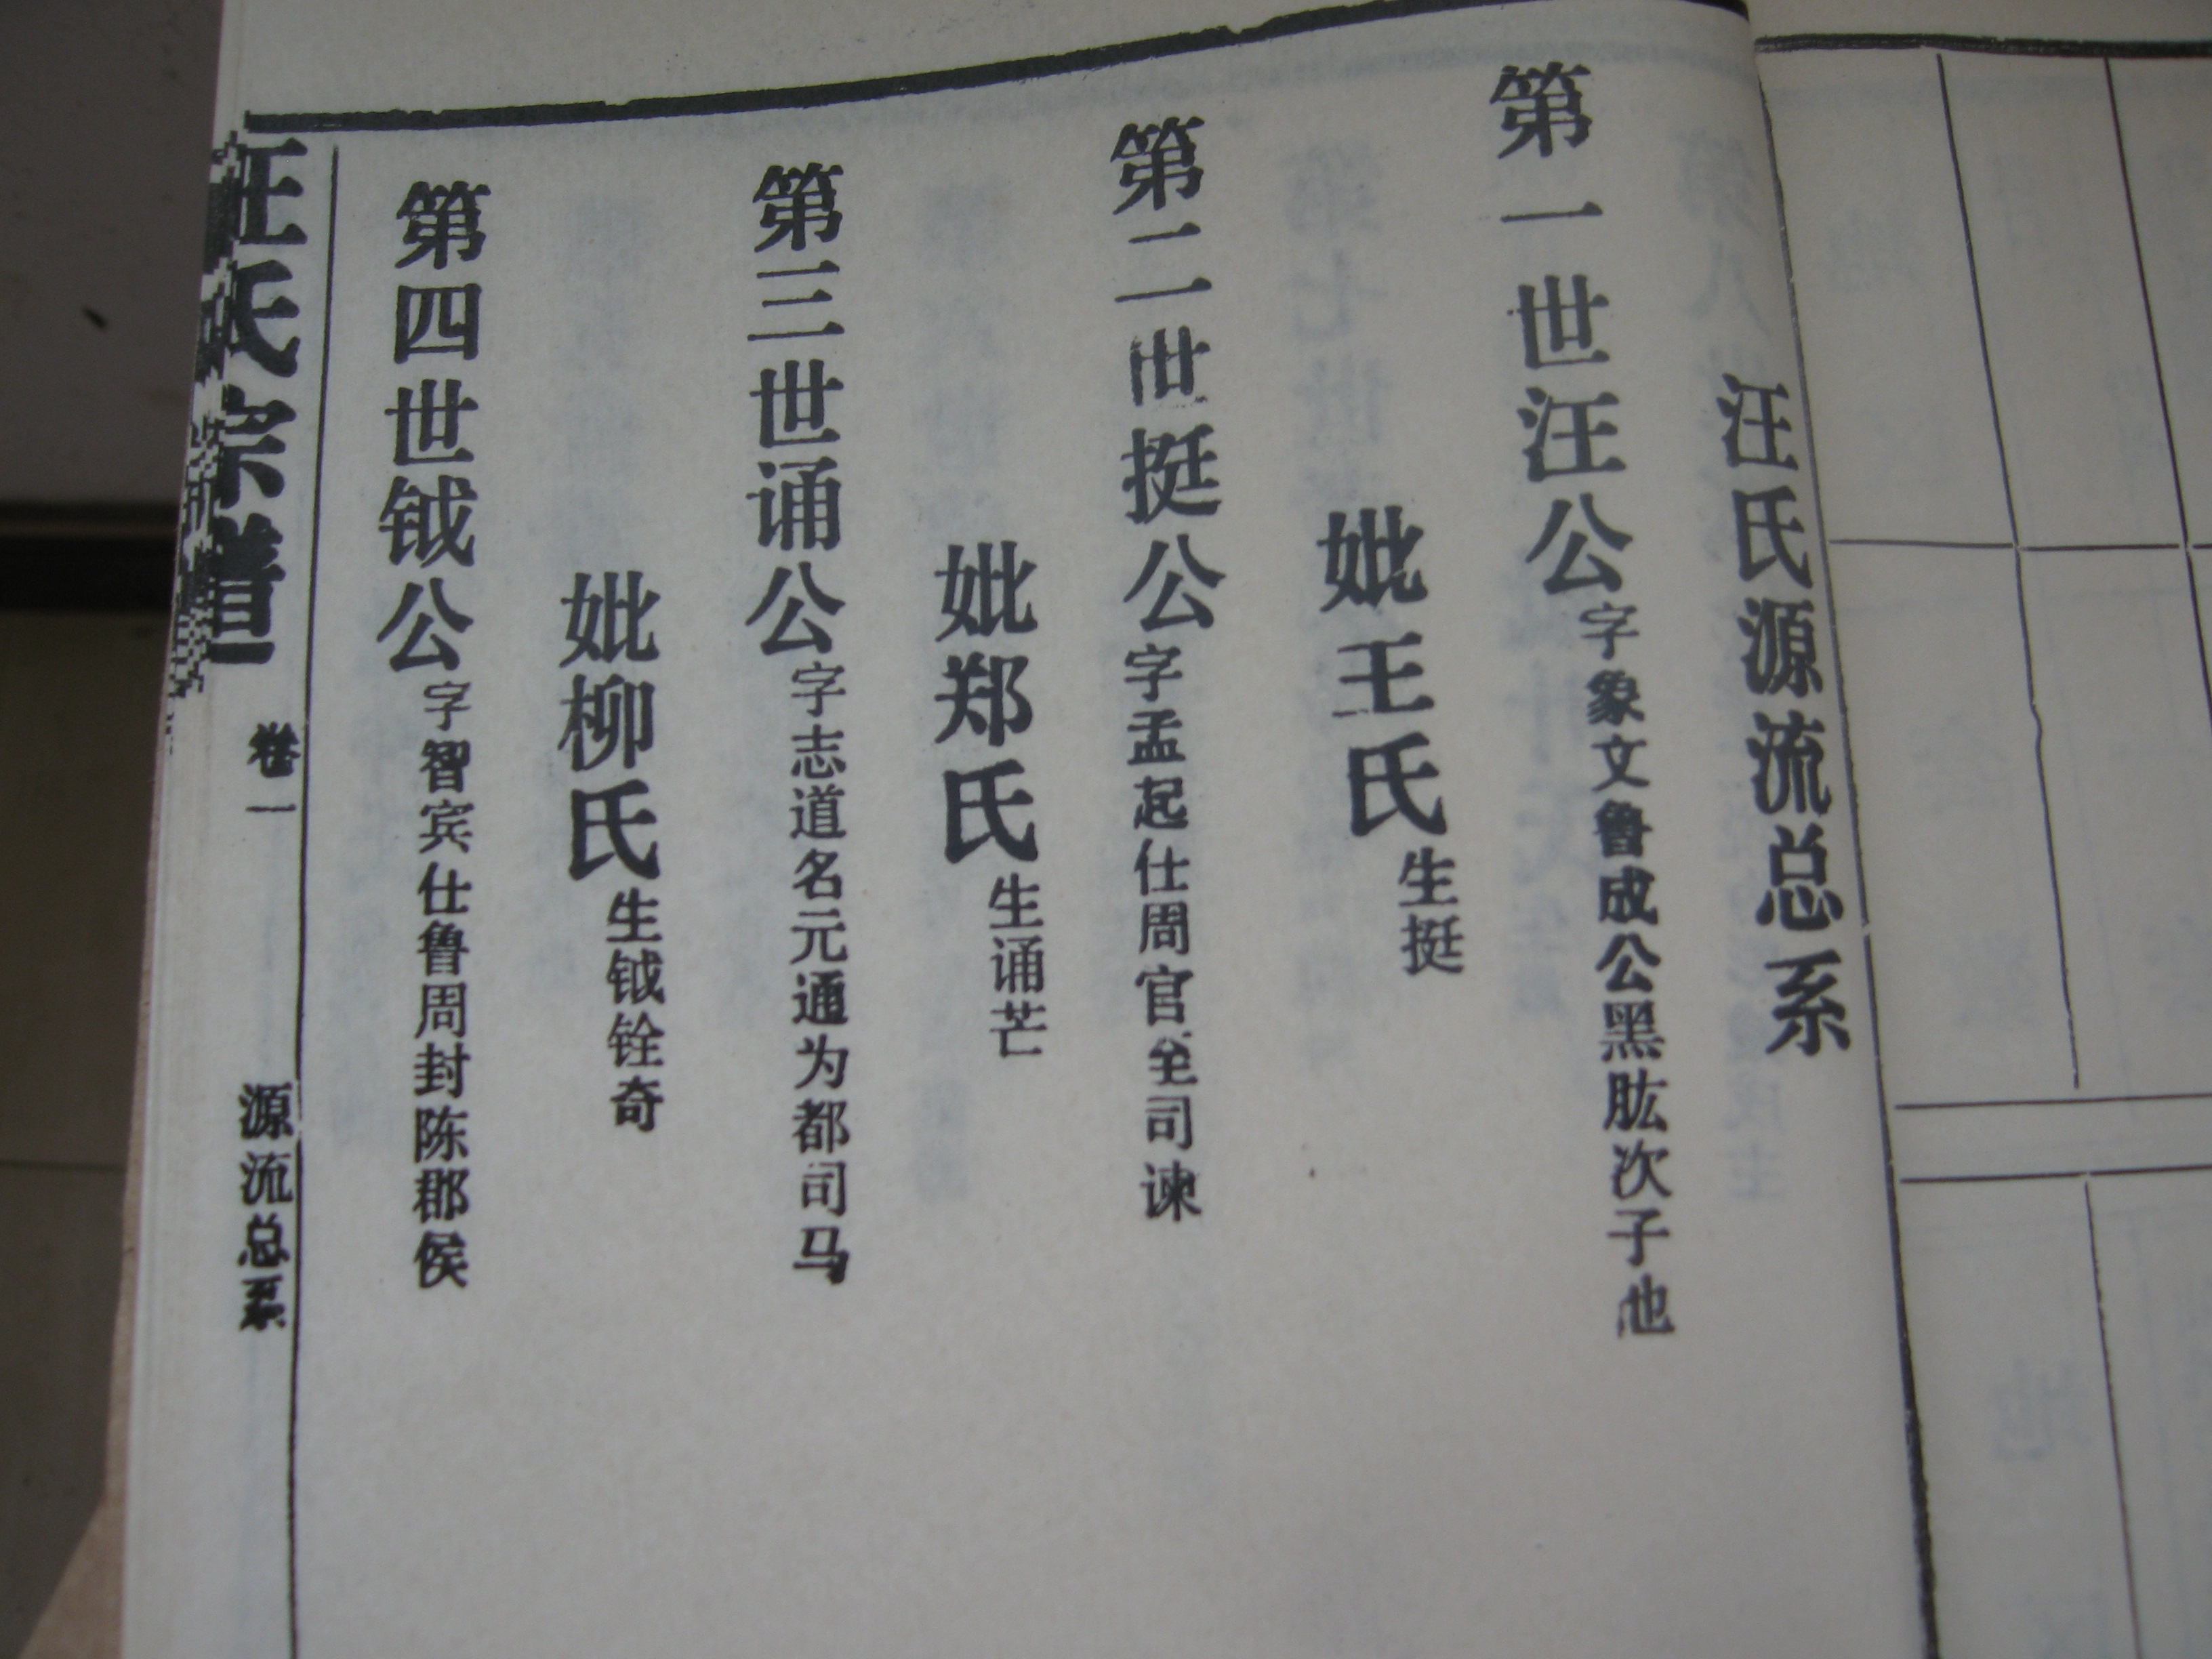 汪氏源流总系
第一世汪公字象文鲁成公黑肱次子也
妣王氏生挺
第二世挺公字孟起仕周官至司谏
妣郑氏生诵芒
第三世诵公字志道名元通为都司马
妣柳氏生钺铨奇
第四世钺公字智宾仕鲁周封陈郡侯
汪氏宗谱 卷一 源流总系